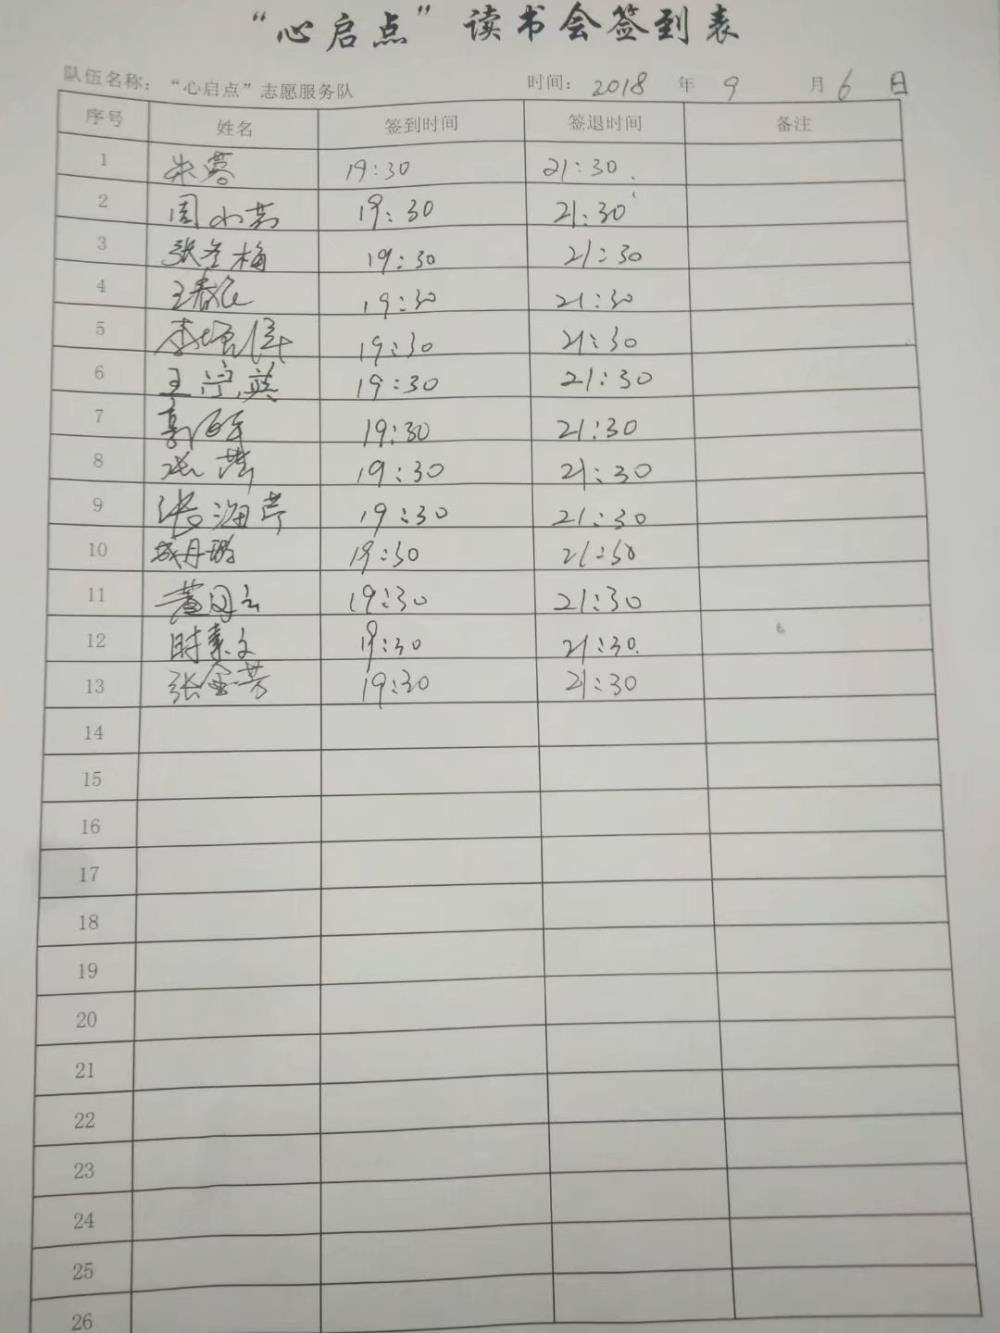 “心启点”读书会签到表
队伍名称：“心启点”志愿服务队 时间：2018 年 9 月 6 日
序号 姓名 签到时间 签退时间 备注
1 朱蓉 19:30 21:30
2 周小芳 19:30 21:30
3 张冬梅 19:30 21:30
4 王春 19:30 21:30
5 李 19:30 21:30
6 王宁英 19:30 21:30
7 19:30 21:30
8 19:30 21:30
9 张海芹 19:30 21:30
10 丹 19:30 21:30
11 董 19:30 21:30
12 时素文 19:30 21:30
13 张金芳 19:30 21:30
14
15
16
17
18
19
20
21
22
23
24
25
26